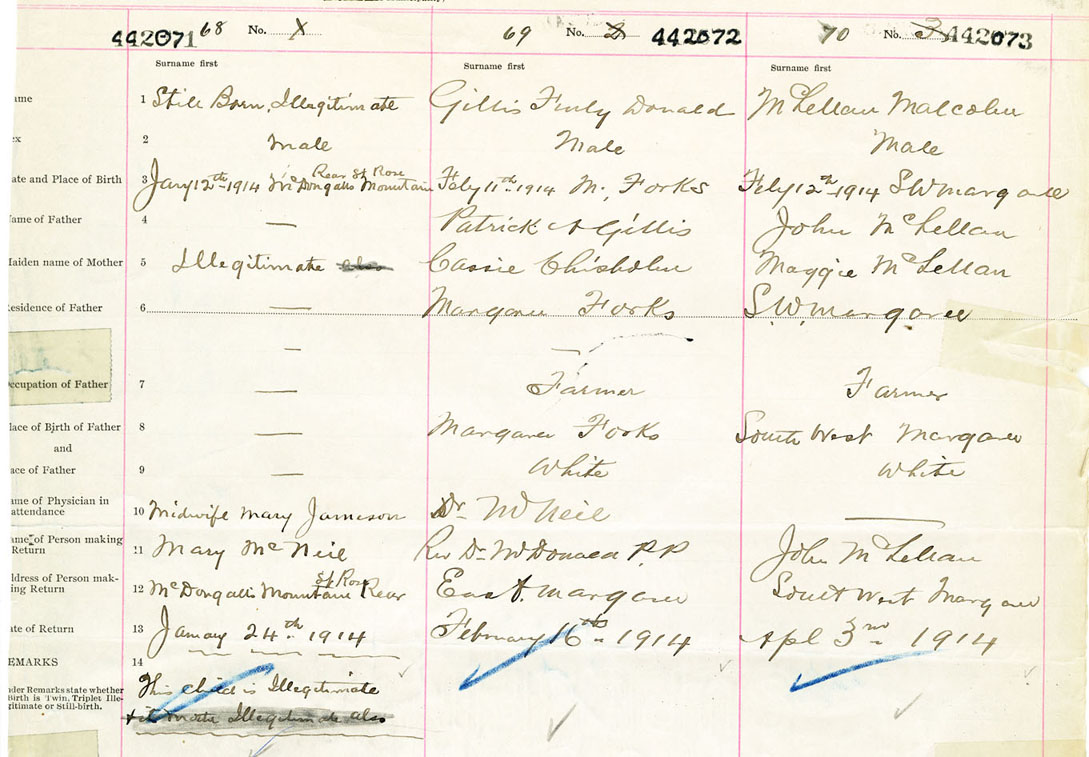 442071 68 No. X 69 No. 2 442072 70 No. 3 442073
Surname first Surname first Surname first
ame 1 Still Born, Illegitimate Gillis Finly Donald McLellan Malcolm
ex 2 Male Male Male
ate and Place of Birth 3 Jany 12th 1914 McDongalls Mountain Rear St Rose Feby 11th 1914 M. Forks Feby 12th 1914 S.W. margaree
ame of Father 4 — Patrick A Gillis John McLellan
aiden name of Mother 5 Illegitimate also Cassie Chisholm Maggie McLellan
esidence of Father 6 — Margaree Forks S.W. margaree
— —
ccupation of Father 7 — Farmer Farmer
lace of Birth of Father 8 — Margaree Forks South West Margaree
and
ace of Father 9 — White White
ame of Physician in
attendance 10 Midwife Mary Jameson Dr McNeil —
ame of Person making
Return 11 Mary McNeil Rev Dr McDonald P.P John McLellan
ddress of Person mak-
ing Return 12 McDongalls Mountain St Rose Rear East margaree South West Margaree
ate of Return 13 January 24th 1914 February 16th 1914 Apl 3rd 1914
EMARKS 14
nder Remarks state whether
Birth is Twin, Triplet Ille-
gitimate or Still-birth.
This child is Illegitimate
Illegitimate also